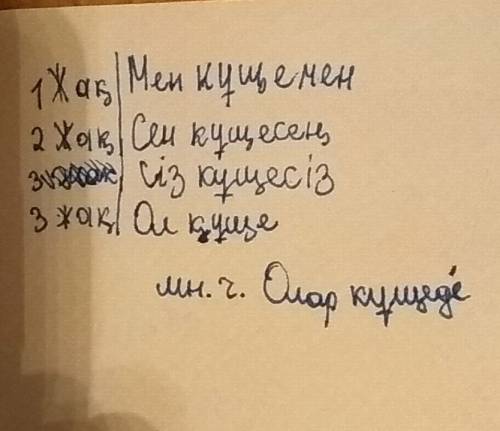 1 Жақ Мен күщемен
2 Жақ Сен күщесең
Сіз күщесіз
3 жақ Ол құще
мн. ч. Олар күщеде